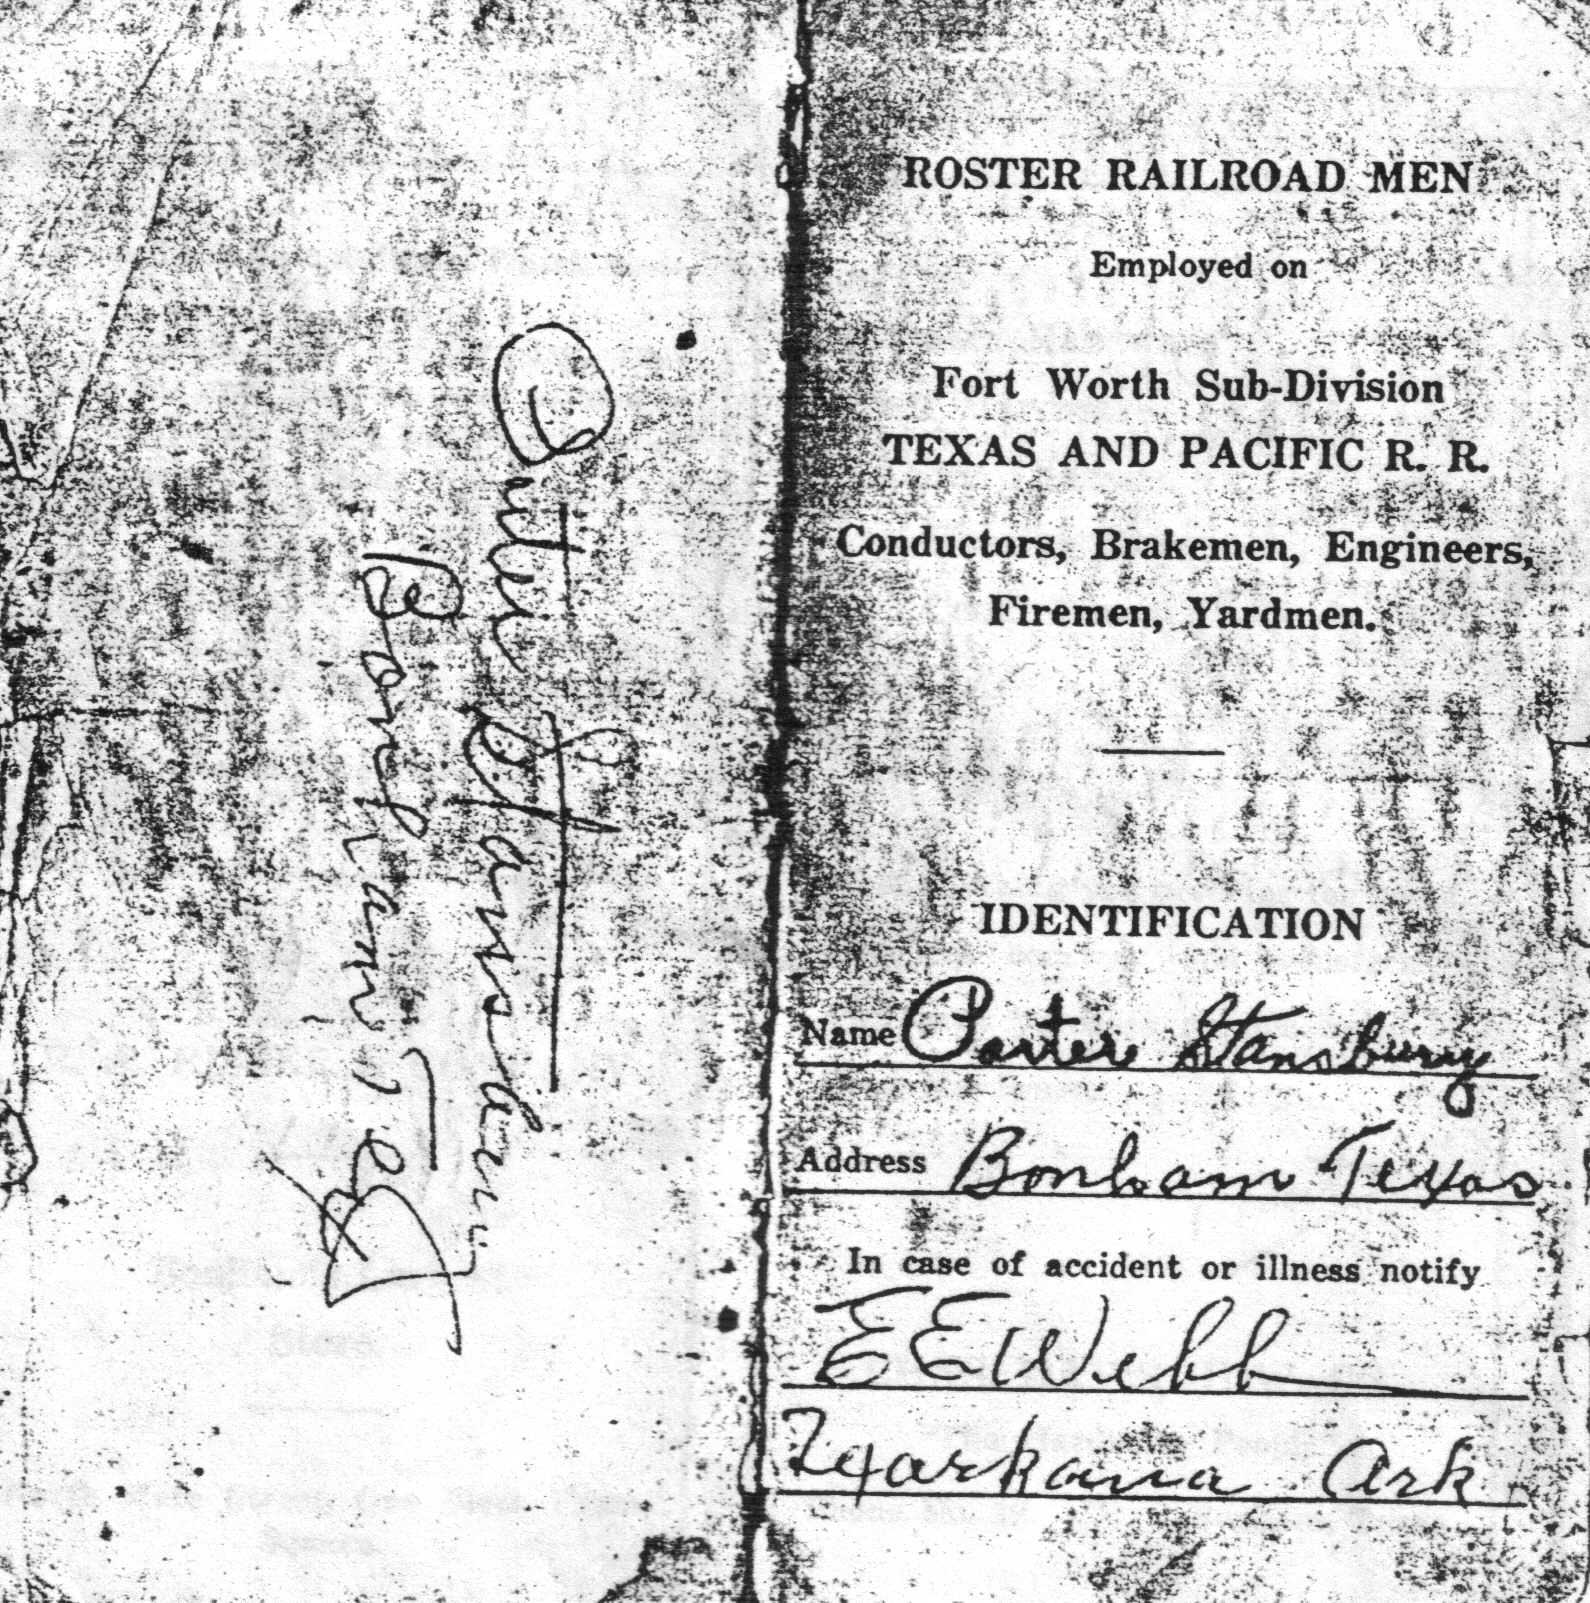 Porter Stansbury
Bonham, Tex
ROSTER RAILROAD MEN
Employed on
Fort Worth Sub-Division
TEXAS AND PACIFIC R. R.
Conductors, Brakemen, Engineers,
Firemen, Yardmen.
IDENTIFICATION
Name Porter Stansbury
Address Bonham Texas
In case of accident or illness notify
E E Webb
Texarkana Ark